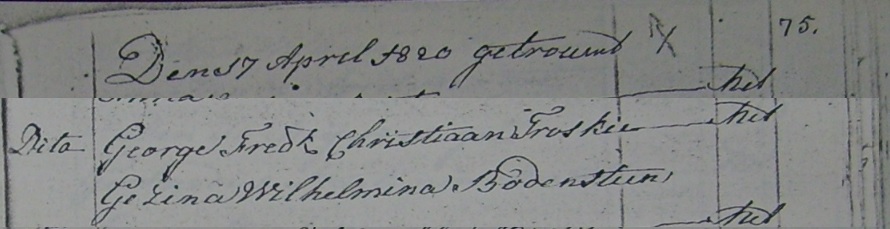 75.
Den 17 April 1820 getrouwd
het
Dito George Fredk Christiaan Troskie het
Gezina Wilhelmina Bodenstein
het